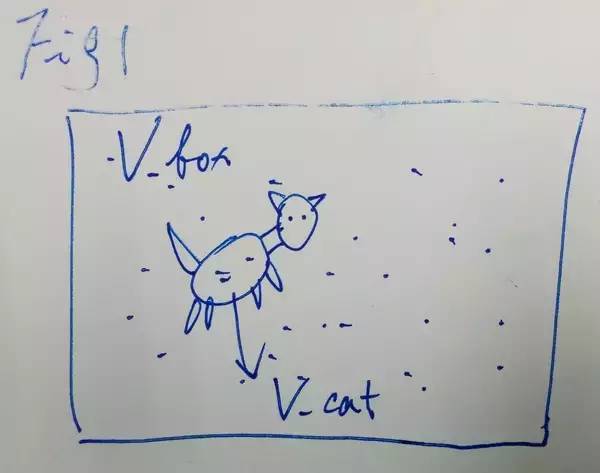 Fig 1
V_box
V_cat